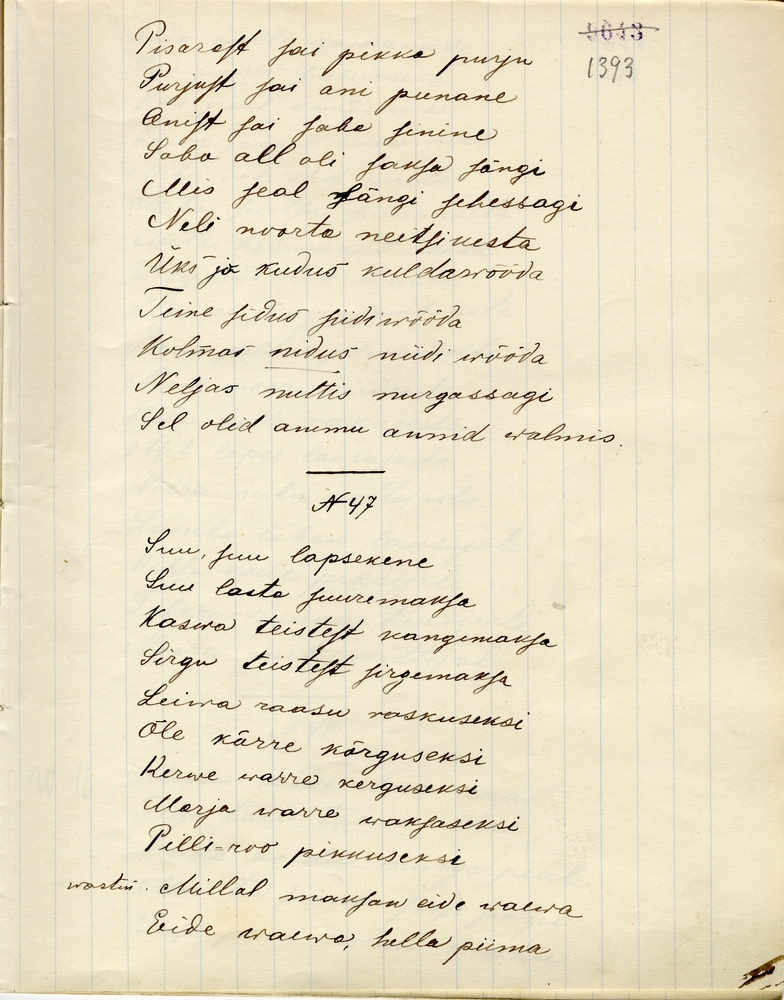 5643
1393
Pisarast sai pikka purju
Purjust sai ani punane
Anist sai saba sinine
Saba all oli saksa sängi
Mis seal sängi sehessagi
Neli noorta neitsikesta
Üks ja kudus kuldawööda
Teine sidus siidi wööda
Kolmas nidus niidi wööda
Neljas nuttis nurgassagi
Sel olid ammu annid walmis.
N 47
Suu, suu lapsekene
Suu lasta suuremaksa
Kaswa teistest kangemaksa
Sirgu teistest sirgemaksa
Leiwa raasu raskuseksi
Õle kõrre kõrguseksi
Kerwe warre kerguseksi
Marja warre waksaseksi
Pilli-roo pikkuseksi
wastus. Millal maksan eide waewa
Eide waewa, hella piima